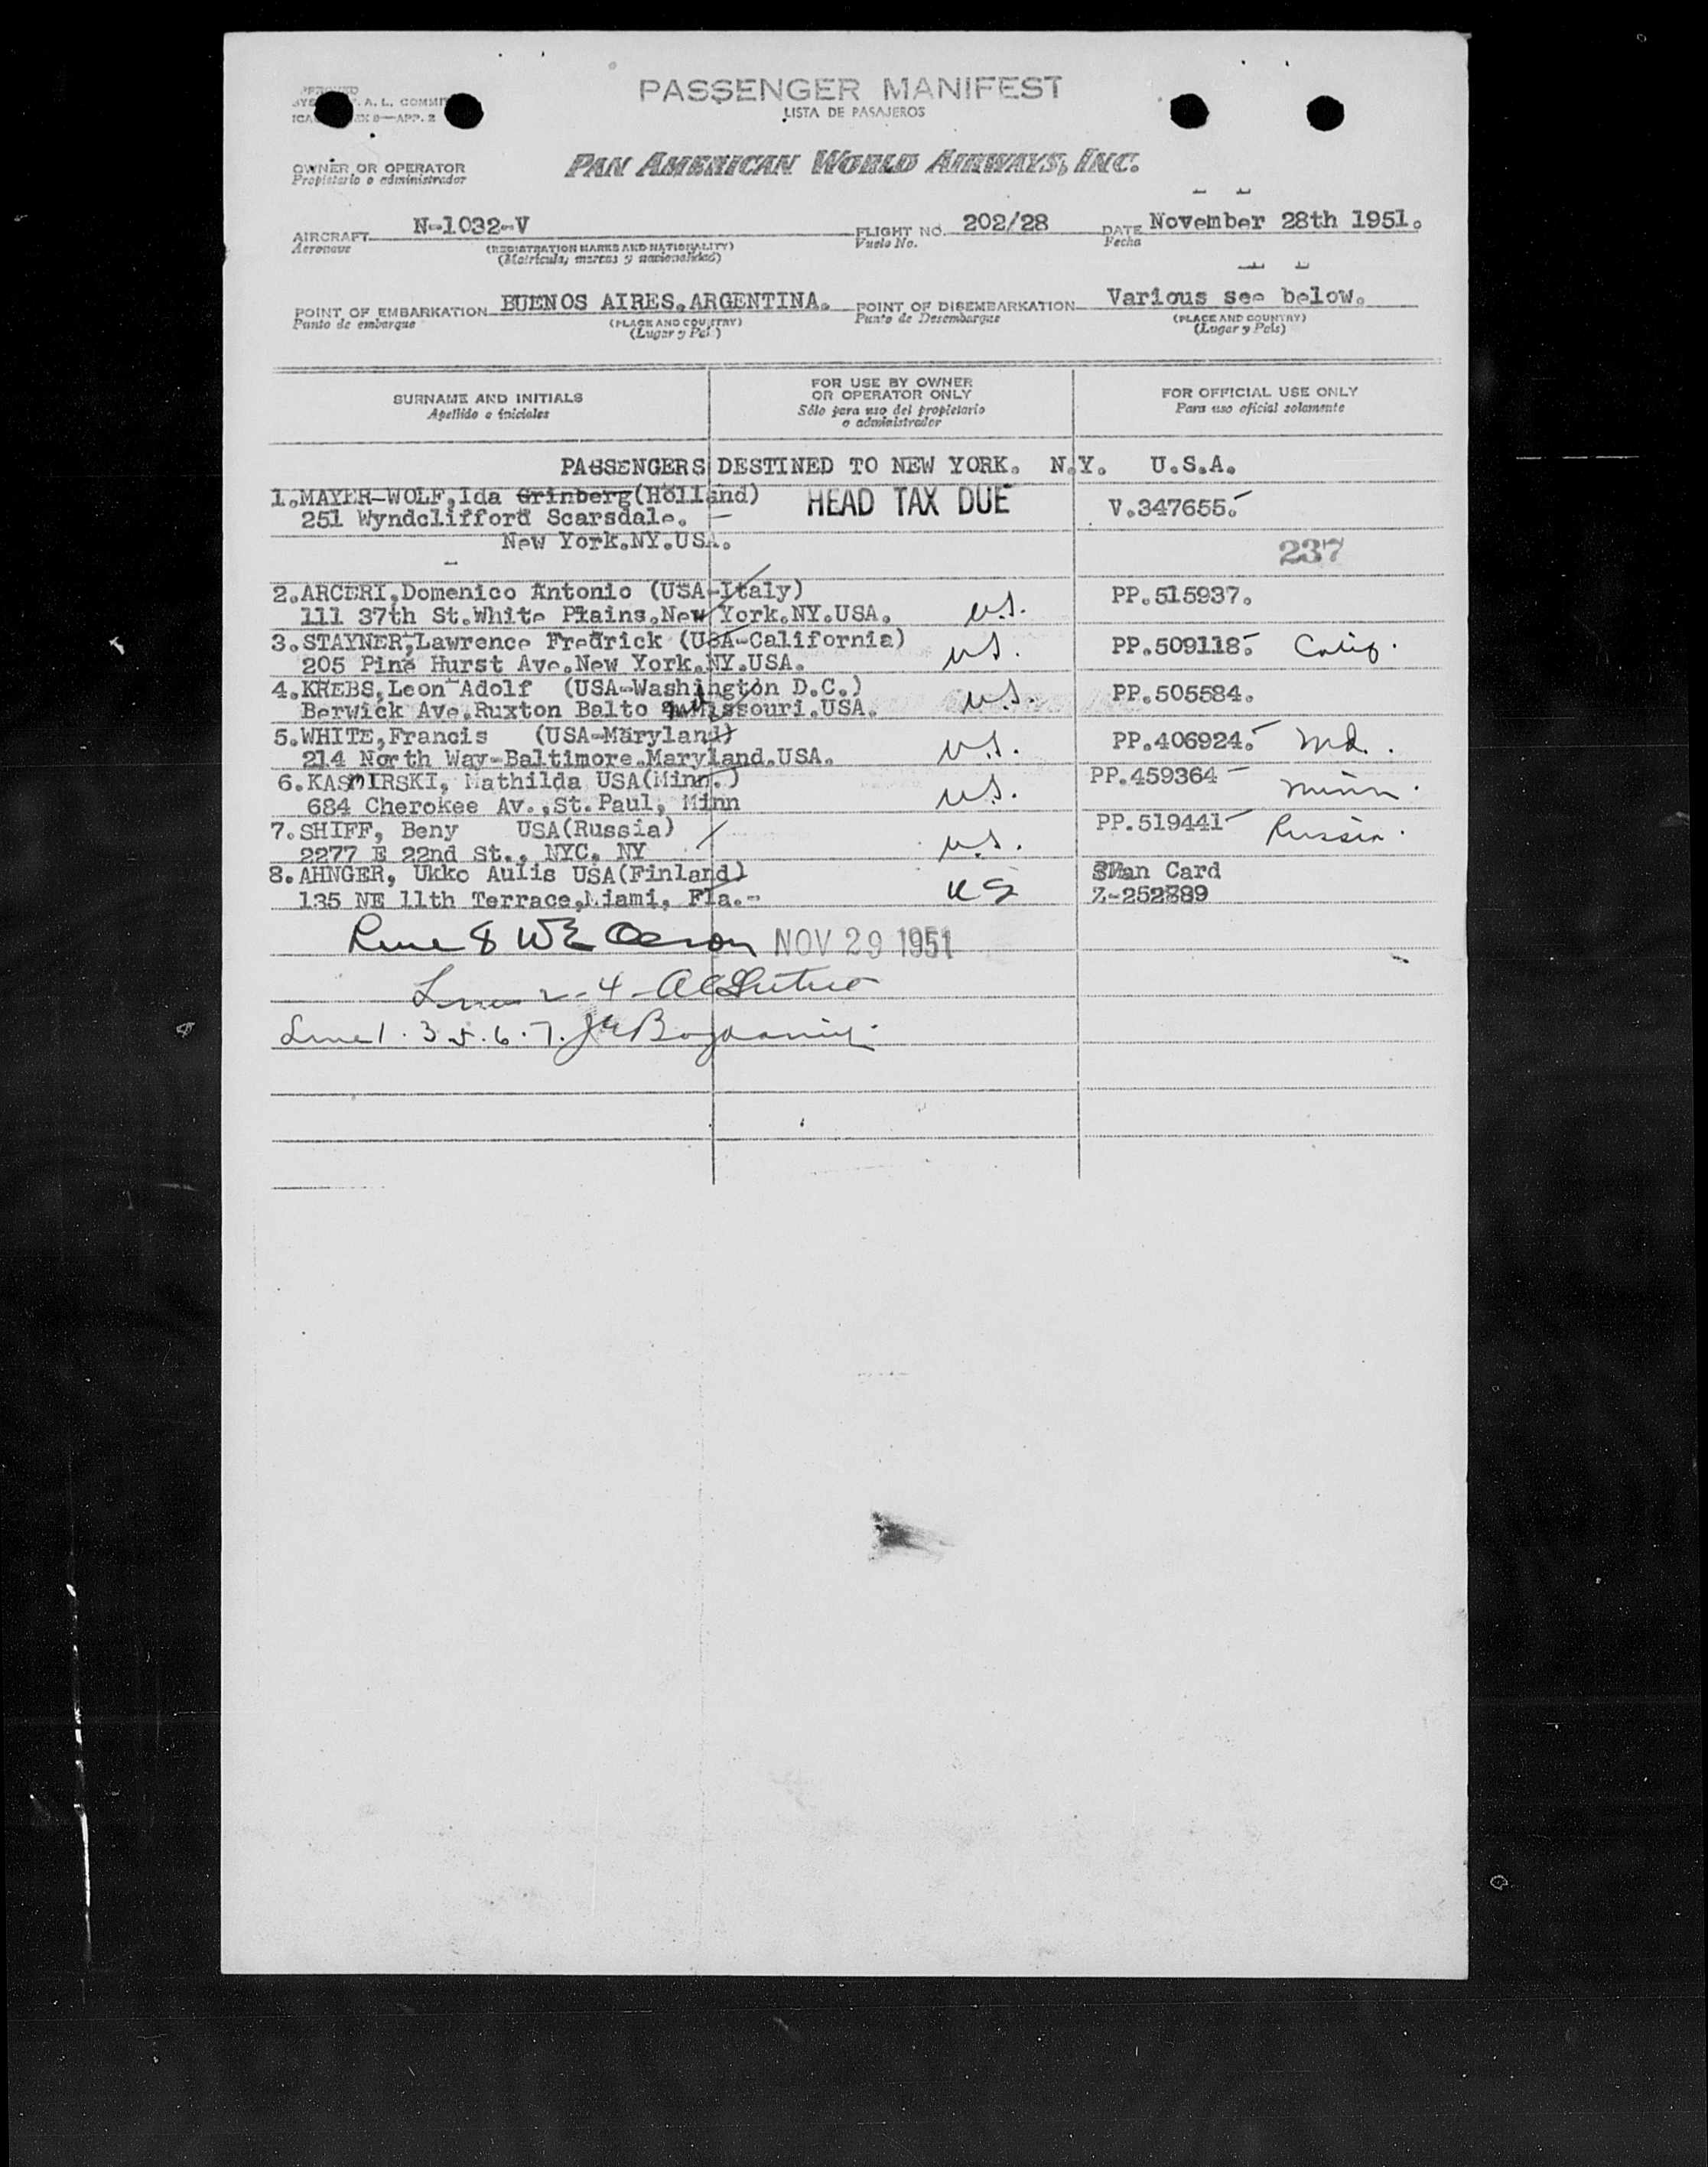 PASSENGER MANIFEST
LISTA DE PASAJEROS
A. L. COMMI
APP. 2
OWNER OR OPERATOR
Propietario o administrador
PAN AMERICAN WORLD AIRWAYS, INC.
AIRCRAFT N-1032-V FLIGHT NO. 202/28 DATE November 28th 1951.
Aeronave (REGISTRATION MARKS AND NATIONALITY) Vuelo No. Fecha
(Matrícula, marcas y nacionalidad)
POINT OF EMBARKATION BUENOS AIRES.ARGENTINA. POINT OF DISEMBARKATION Various see below.
Punto de embarque (PLACE AND COUNTRY) Punto de Desembarque (PLACE AND COUNTRY)
(Lugar y País) (Lugar y País)
SURNAME AND INITIALS FOR USE BY OWNER OR OPERATOR ONLY FOR OFFICIAL USE ONLY
Apellido e iniciales Sólo para uso del propietario o administrador Para uso oficial solamente
PASSENGERS DESTINED TO NEW YORK. N.Y. U.S.A.
1.MAYER-WOLF,Ida Grinberg(Holland) HEAD TAX DUE V.347655.
251 Wyndclifford Scarsdale.
New York.NY.USA.
237
2.ARCERI,Domenico Antonio (USA-Italy) PP.515937.
111 37th St.White Plains.New York.NY.USA. U.S.
3.STAYNER,Lawrence Fredrick (USA-California) PP.509118. Calif.
205 Pine Hurst Ave.New York.NY.USA. U.S.
4.KREBS,Leon Adolf (USA-Washington D.C.) PP.505584.
Berwick Ave.Ruxton Balto Missouri.USA. U.S.
5.WHITE,Francis (USA-Maryland) PP.406924. Md.
214 North Way-Baltimore.Maryland.USA. U.S.
6.KASMIRSKI, Mathilda USA(Minn.) PP.459364 Minn.
684 Cherokee Av.,St.Paul, Minn U.S.
7.SHIFF, Beny USA(Russia) PP.519441 Russia.
2277 E 22nd St., NYC. NY U.S.
8.AHNGER, Ukko Aulis USA(Finland) Card
135 NE 11th Terrace,Miami, Fla.- US Z-252889
Line 8 NOV 29 1951
Line 2-4
Line 1. 3. 5. 6. 7.